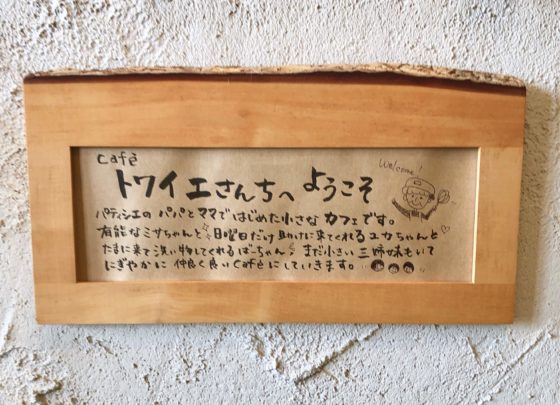 Cafè
トワイエさんちへ ようこそ
Welcome!
パティシエの パパとママで はじめた小さな カフェです。
有能なミサちゃんと 日曜日だけ 助けに来てくれるユカちゃんと
たまに来て 洗い物してくれるばーちゃん。まだ小さい 三姉妹もいて
にぎやかに 仲良く良いcafèにしていきます。